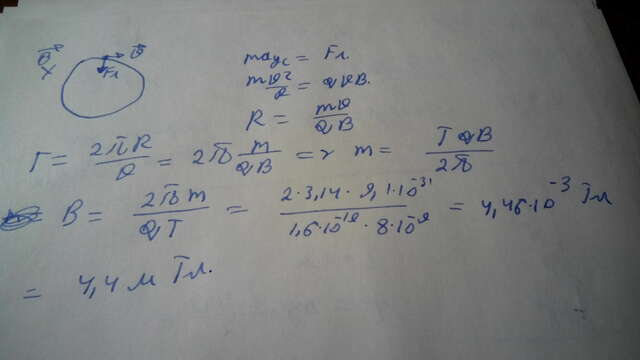 B⃗ x  v⃗
Fл
maцс = Fл.
mv²/R = qvB.
R = mv/qB
T = 2πR/v = 2π m/qB => m = TqB/2π
B = 2πm/qT = 2·3,14·9,1·10⁻³¹/1,6·10⁻¹⁹·8·10⁻⁹ = 4,46·10⁻³ Тл
= 4,4 мТл.